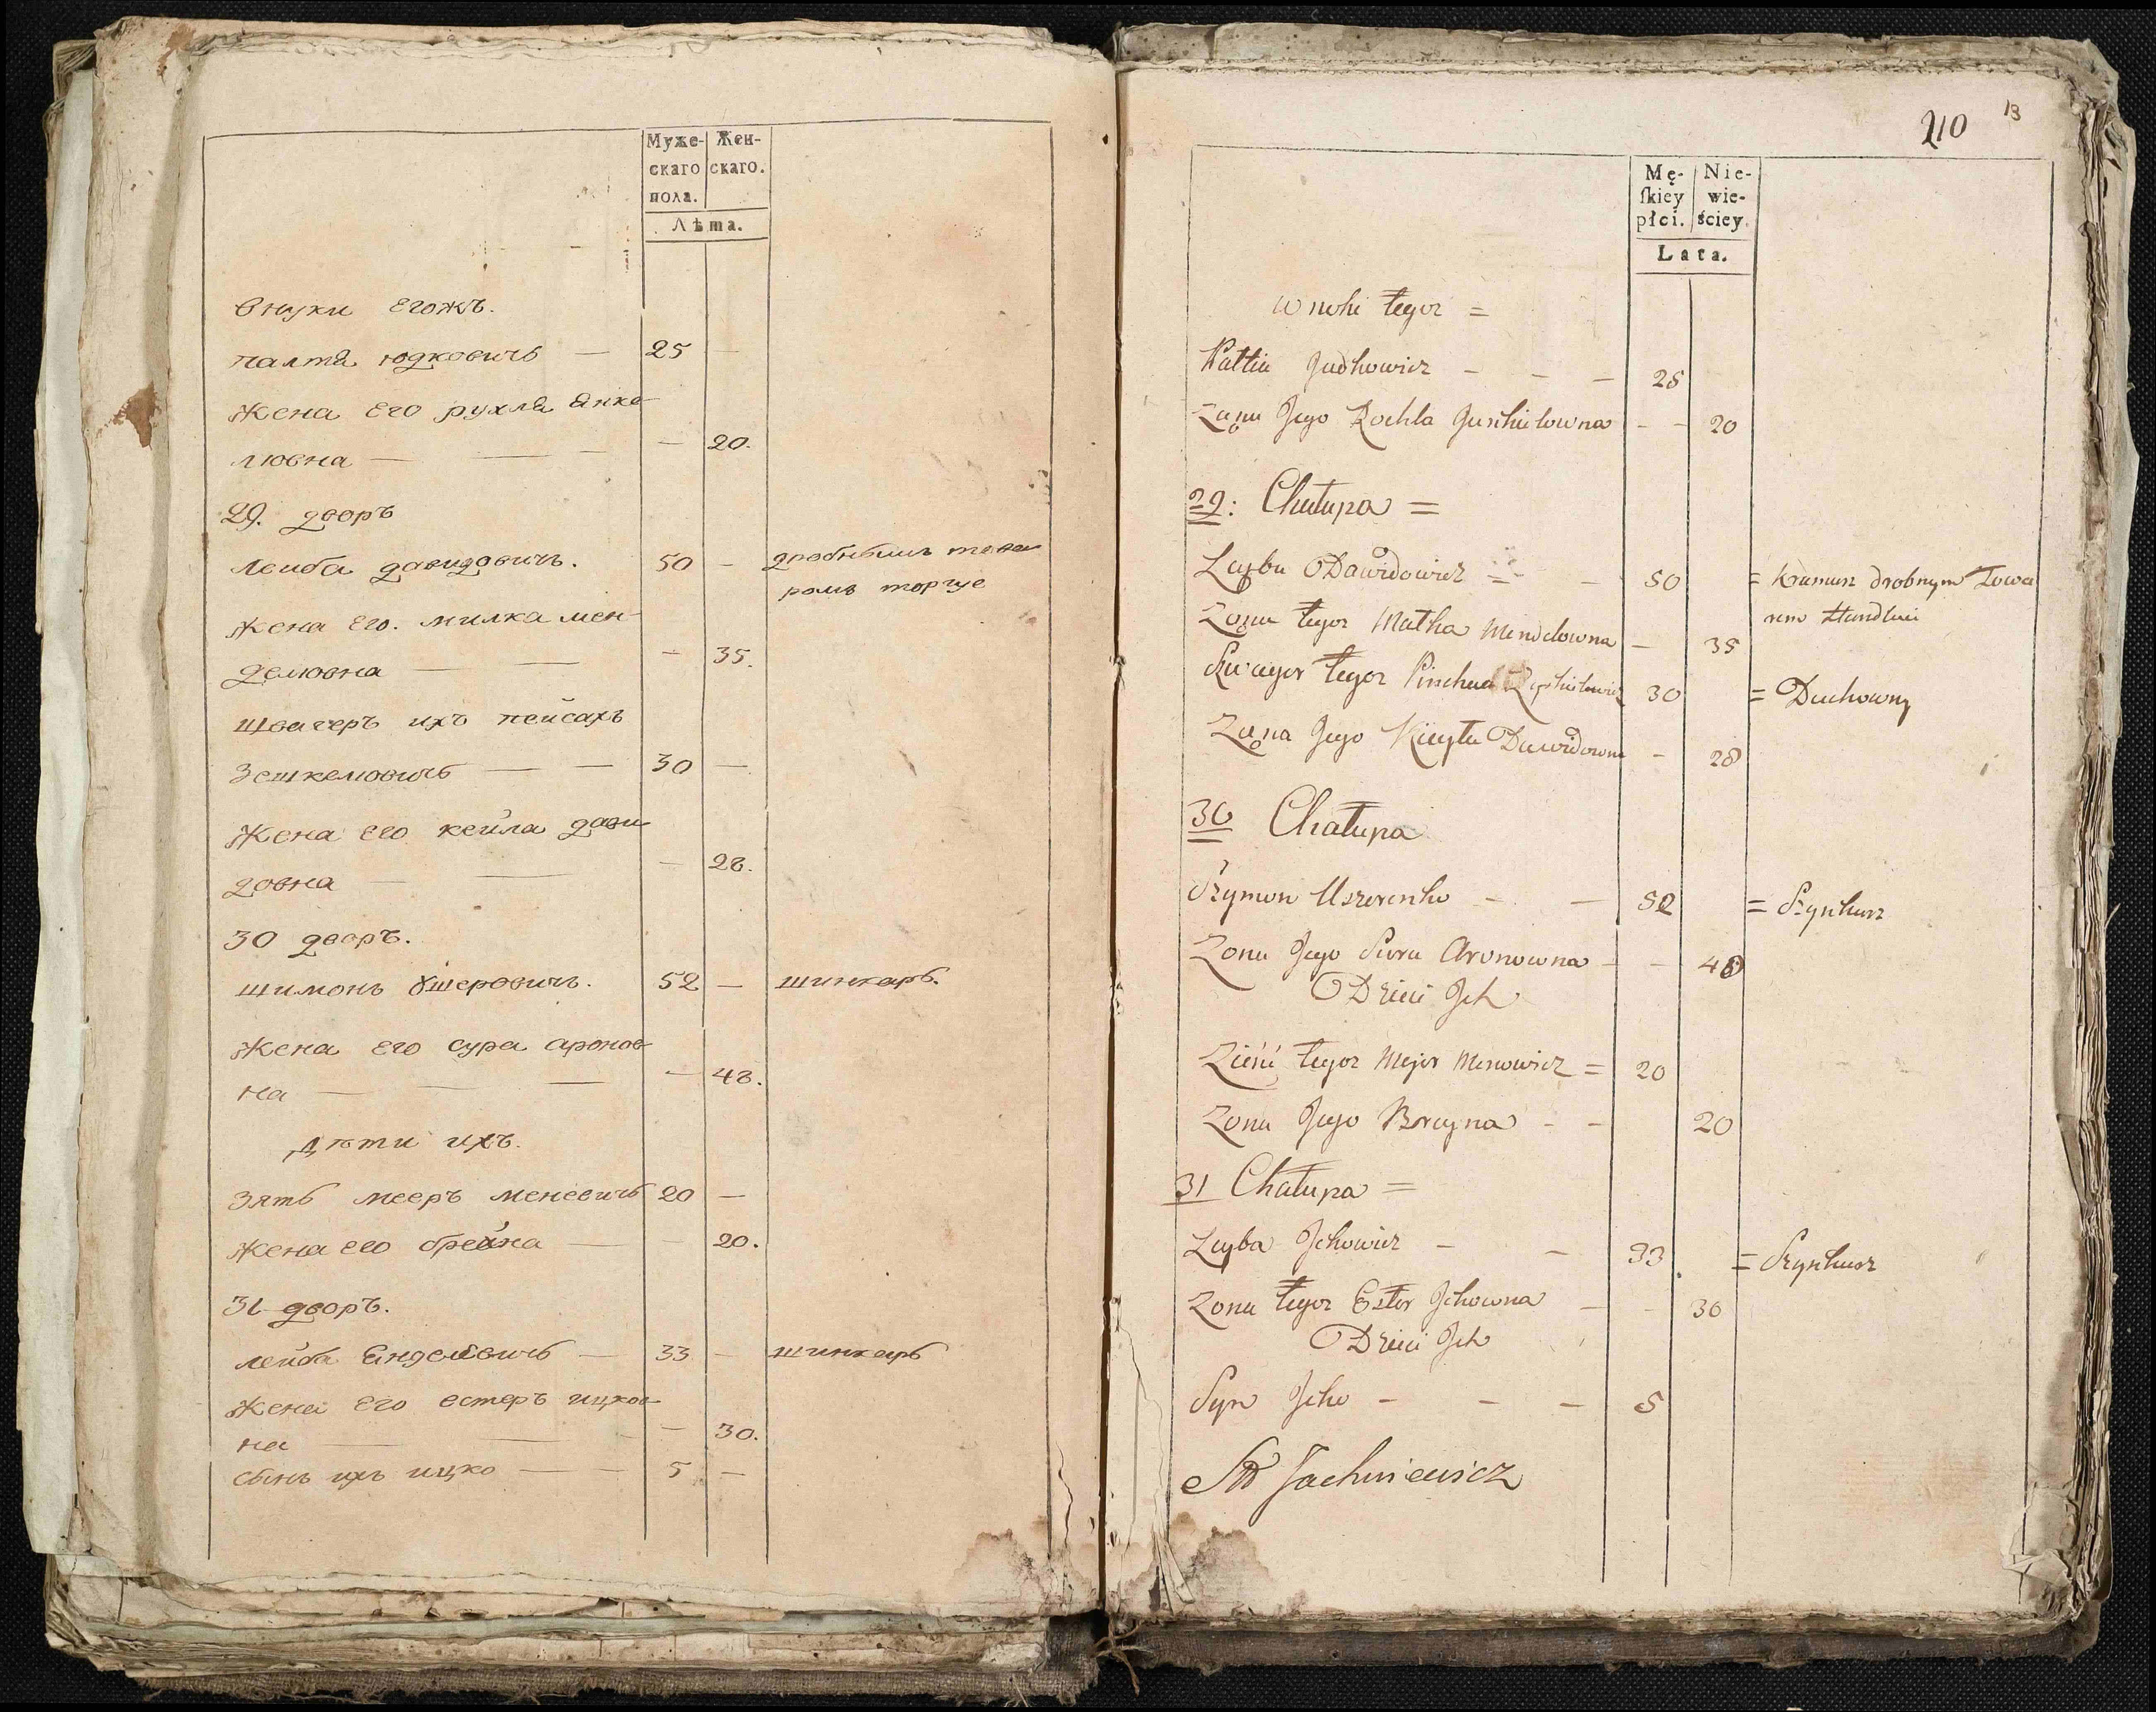 Муже-
скаго
пола.
Жен-
скаго.
Лѣта.
Внуки Егожъ.
палтя юдковичъ — 25 —
Жена Его рухля янке-
лювна — — — — 20.
29. дворъ
леиба давидовичъ. 50 — дробнымъ това
ромъ торгуе
Жена Его. милка мен-
делювна — — — 35.
швагеръ ихъ пейсахъ
Зешкелювичъ — — 30 —
Жена его кейла дави-
довна — — — 28.
30 дворъ.
шимонъ Ушеровичъ. 52 — шинкаръ.
Жена Его сура аронов-
на — — — — 48.
Дѣти ихъ.
Зять мееръ меневичъ 20 —
Жена его брейна — — 20.
31 дворъ.
лейба 33 — шинкаръ
Жена Его естеръ ицков-
на — — — 30.
сынъ ихъ ицко — — 5 —
210 13
Mę-
ſkiey
płci.
Nie-
wie-
ściey.
Lata.
Wnuki tegoz =
Paltia Judkowicz — — — 25
Zona Jego Rochla — — 20
29: Chałupa =
Leyba Dawidowicz = — 50 = Kramarz drobnym Towa
rem Handluie
Zona tegoz Małka Mendelowna — 35
Szwagier tegoz 30 = Duchowny
Zona Jego Kieyla Dawidowna — 28
30 Chałupa
Szymon Uszerenko — — 52 = Szynkarz
Zona Jego Sura Aronowna — — 48
Dzieci Ich
Zięć tegoz Mejer Menowicz = 20
Zona Jego Breyna — — 20
31 Chałupa =
Leyba Ickowicz — — 33. = Szynkarz
Zona tegoz Ester Ickowna — — 30
Dzieci Ich
Syn Icko — — — 5
Jachniewicz